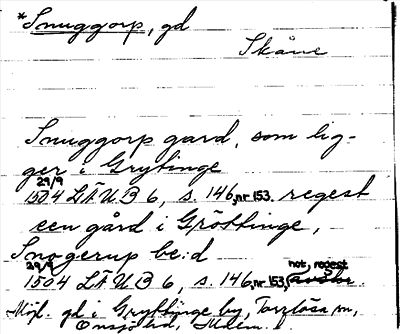 *Snuggorp, gd
Skåne
Snuggorp gard, som lig-
ger i Grytinge
29/9
1504 LÄUB 6, s. 146, nr 153. regest
een gård i Gröttinge,
Snogerup be:d
29/9 not, regest
1504 LÄUB 6, s. 146, nr 153, avskr.
Möjl. gd i Gryttinge by, Torrlösa sn,
Onsjö hd,